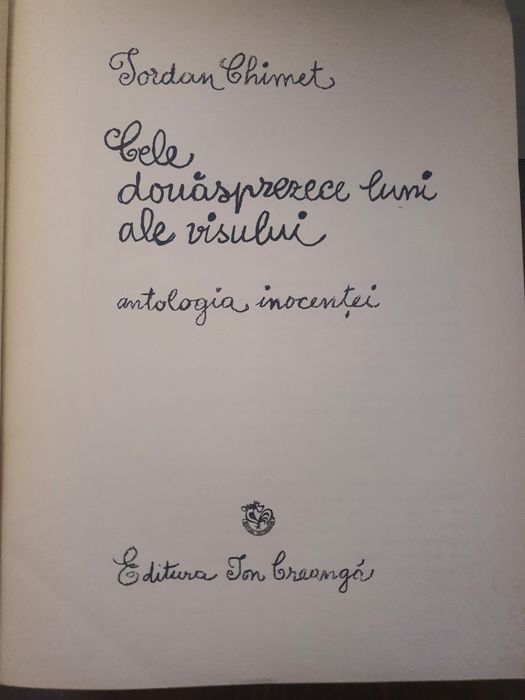 Iordan Chimet
Cele
douăsprezece luni
ale visului
antologia inocenței
Editura Ion Creangă